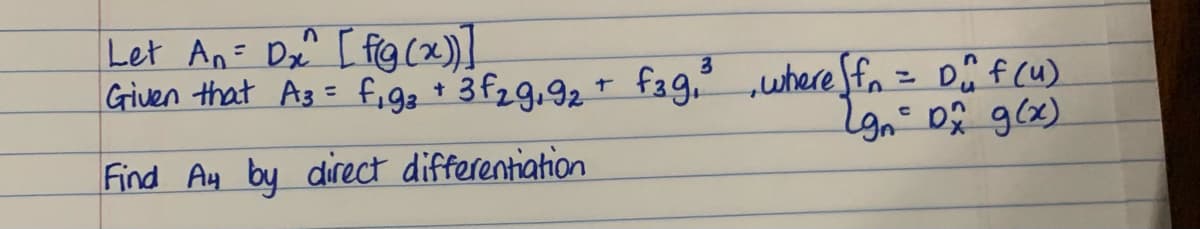 Let An = Dxⁿ [f(g(x))]
Given that A₃ = f₁g₃ + 3f₂g₁g₂ + f₃g₁³ , where { fn = Duⁿ f(u)
gn = Dxⁿ g(x)
Find A₄ by direct differentiation